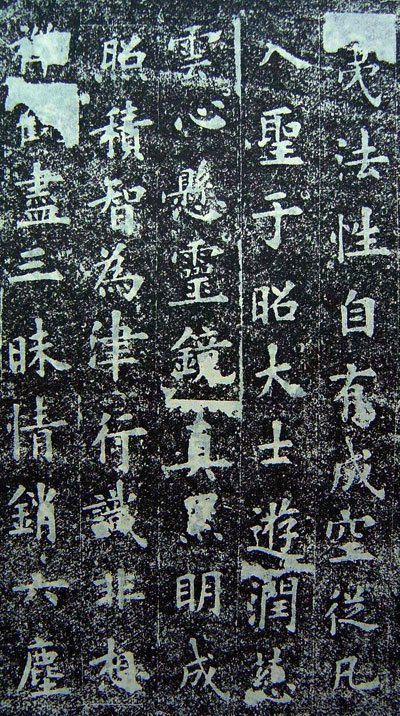 法性自有成空從凡
入聖于昭大士遊潤慈
雲心懸靈鏡真明成
昭積智為津行識非想
禪盡三昧情銷六塵